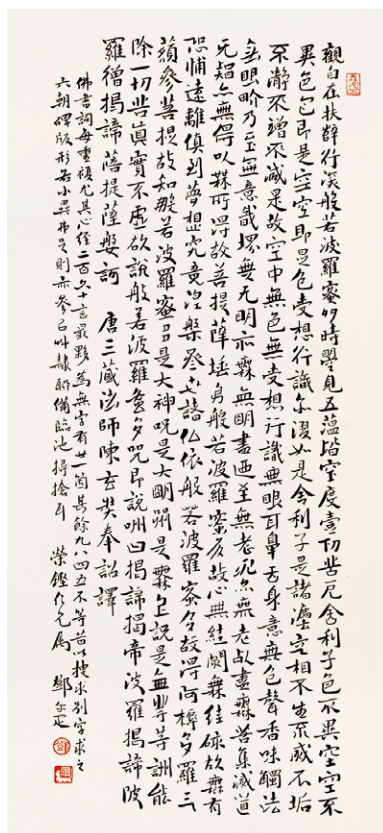 觀自在菩薩行深般若波羅蜜多時照見五蘊皆空度壹切苦厄舍利子色不異空空不
異色色即是空空即是色受想行識亦復如是舍利子是諸法空相不生不滅不垢
不淨不增不減是故空中無色無受想行識無眼耳鼻舌身意無色聲香味觸法
無眼界乃至無意識界無无明亦無無明盡乃至無老死亦無老死盡無苦集滅道
无智亦無得以無所得故菩提薩埵依般若波羅蜜多故心無罣礙無罣礙故無有
恐怖遠離顛倒夢想究竟涅槃叁世諸仏依般若波羅蜜多故得阿耨多羅三
藐叁菩提故知般若波羅蜜多是大神咒是大明咒是無上咒是無等等咒能
除一切苦真實不虛故說般若波羅蜜多咒即說咒曰揭諦揭帝波羅揭諦波
羅僧揭諦菩提薩婆訶 唐三藏法師陳玄奘奉詔譯
佛書詞每重複尤其心經二百六十言最夥為無字有廿一箇其餘九八四五不等茲以搜求別字求之
六朝碑版形若小異弗是則亦參以艸隸聊備臨池撏撦耳 榮鏗仁兄屬 鄧尔疋